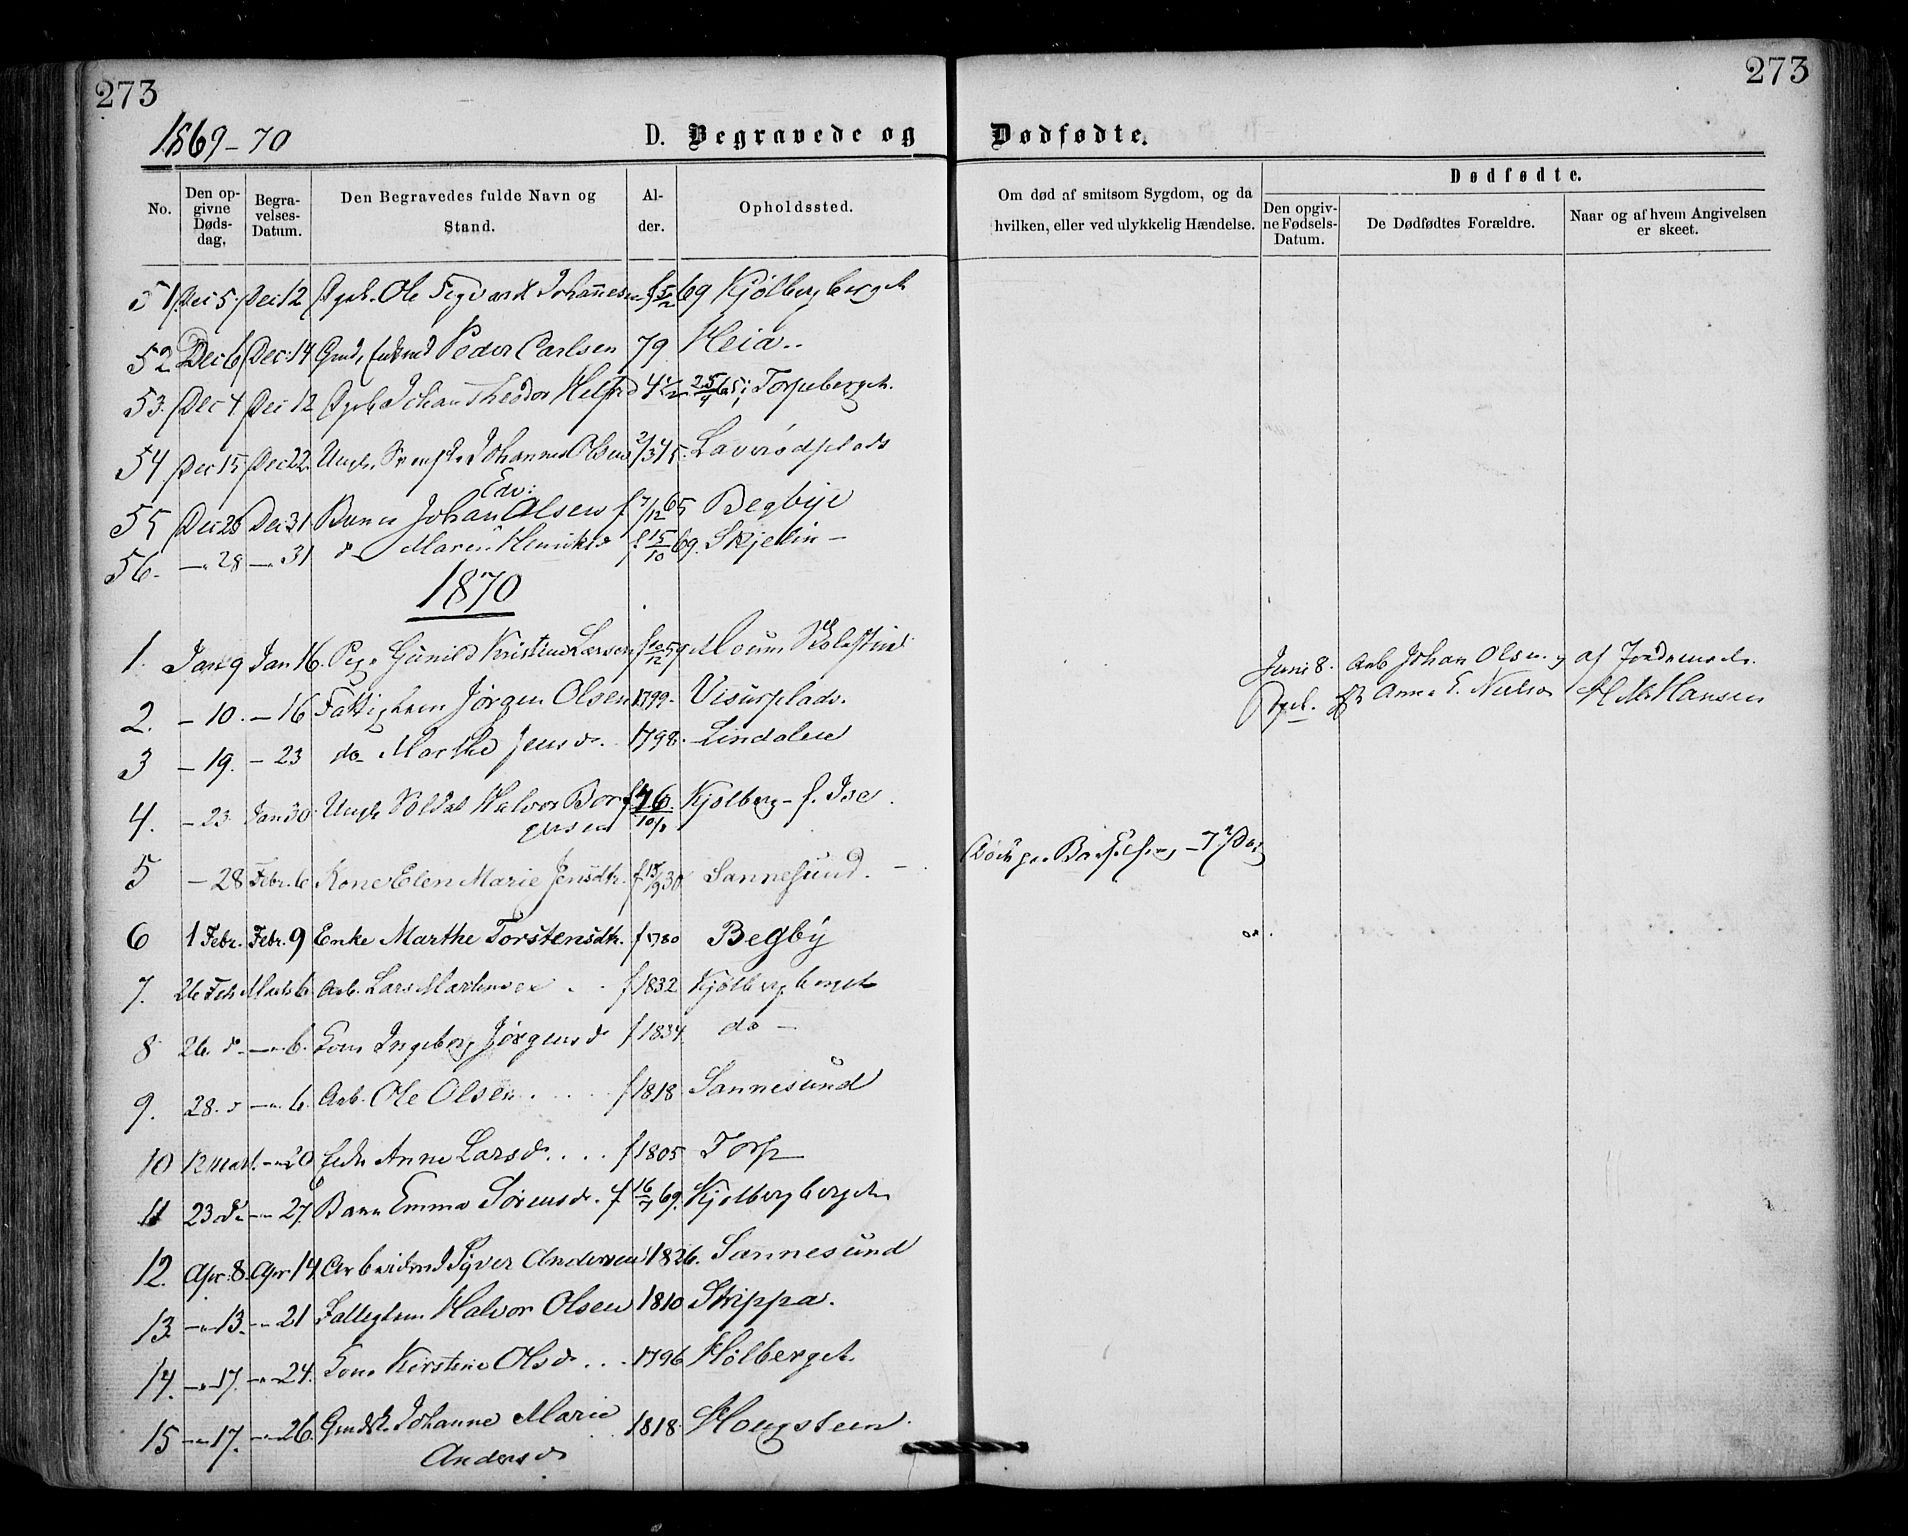 273
273
1869-70
D. Begravede og Dødfødte.
No.
Den opgivne Dødsdag.
Begravelses-Datum.
Den Begravedes fulde Navn og Stand.
Alder.
Opholdssted.
Om død af smitsom Sygdom, og da hvilken, eller ved ulykkelig Hændelse.
Dødfødte.
Den opgivne Fødsels-Datum.
De Dødfødtes Forældre.
Naar og af hvem Angivelsen er skeet.
51 Dec 5. Dec 12 Ole Sigvard Johannesen f 5/2 69 Kjølbergberget
52 Dec 6 Dec. 14 Peder Carlsen 79 Heia..
53. Dec 4 Dec 12 Johan Theodor 4 1/2 25/4 65; Torpeberget.
54 Dec 15 Dec 22. Ungk. Johannes Olsen
Edv:
55 Dec 28 Dec 31 Barn Johan Olsen f 7/12 65 Begbye
56. — 28 — 31 d— Maren Henriksd f. 15/10 69. Skjelin —
1870
1. Jan 9 Jan 16. Pige Gunild Kristine Larsen
2. — 10. — 16 Fattiglem Jørgen Olsen 1799. Visurplads.
3 — 19. — 23 do— Marthe Jensd. 1798. Lindalen
4. — 23. Jan 30. Ungk. Soldat Halvor Borgersen Kjølberg — f. Ise.
5 — 28 Febr. 6 Kone Elen Marie Jensdtr. f 15/9 30 Sannesund. —
6 1 Febr. Febr. 9 Enke Marthe Torstensdtr. f 1780 Begby
7. 26 Feb Marts 6. Arb. Lars Martinsen . . f 1832 Kjølbergberget
8 26. d. — 6. Kone Ingeborg Jørgensd f 1834. do —
9. 28. d — 6. Arb. Ole Olsen . . . . f 1818. Sannesund
10 12 Mart. — 20 Enke Anne Larsd. . . . f 1805 Torp
11 23 d. — 27. Barn Emma Sørensd. f. 16/7 69. Kjølbergberget
12. Apr. 8. Apr. 14. Arbeidsmd Syver Andersen 1826. Sannesund
13. — 13. — 21 Fattiglem Halvor Olsen 1810 Skippa.
14. — 17. — 24. Kone Kirstine Olsd . . . 1796 Hølberget
15 — 17. — 26. Johanne Marie Andersd 1818. Hougsteen
Juni 8. Arb Johan Olsen og
Anne E. Nielsen
af Jordemod.
H M Hansen